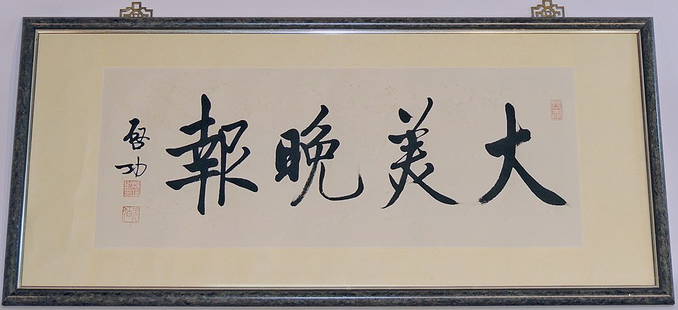 大美晚報
啓功